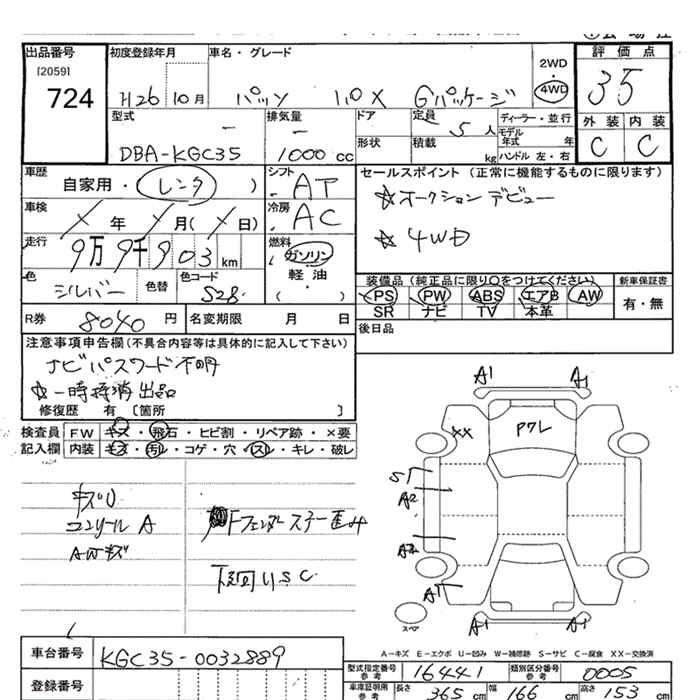 出品番号 初度登録年月 車名・グレード 2WD 評価点
[2059]
724 H26 10月 パッソ 1.0X Gパッケージ 4WD 3.5
型式 排気量 ドア 定員 5人 ディーラー・並行 外装 内装
形状 積載 kg モデル年式 年 C C
DBA-KGC35 1000 cc ハンドル 左・右
車歴 シフト セールスポイント (正常に機能するものに限ります)
自家用・(レンタ) AT ☆オークション デビュー
車検 冷房
X年 X月(X日) AC ☆ 4WD
走行 燃料
9万9千903km ガソリン
色 色替 色コード 軽油 装備品(純正品に限り○をつけてください) 新車保証書
シルバー S28 ( ) PS PW ABS エアB AW 有・無
SR ナビ TV 本革
R券 8040円 名変期限 月 日 後日品
注意事項申告欄(不具合内容等は具体的に記入して下さい)
ナビパスワード不明
☆一時抹消出品
修復歴 有 [箇所 ]
検査員 FW キズ・飛石・ヒビ割・リペア跡・×要
記入欄 内装 キズ・汚レ・コゲ・穴・スレ・キレ・破レ
A1 A1
XX P7L
S
A2
A2
A1
A1 A1
スペア
コンソール A
AWキズ
Fフェンダーステー歪み
下回りSC
A-キズ E-エクボ U-凹み W-補修跡 S-サビ C-腐食 XX-交換済
車台番号 KGC35-0032889
型式指定番号 参考 16441 類別区分番号 参考 0005
登録番号 車庫証明用 参考 長さ 365 cm 幅 166 cm 高さ 153 cm